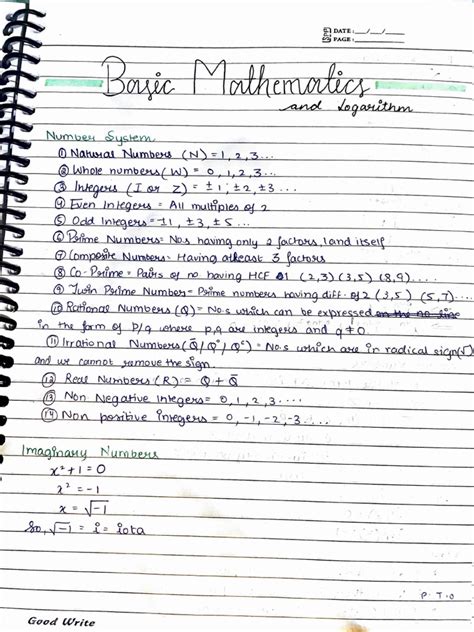 DATE: __/__/__
PAGE:
Basic Mathematics
and Logarithm
Number System
① Natural Numbers (N) = 1, 2, 3 ...
② Whole numbers (W) = 0, 1, 2, 3 ...
③ Integers (I or Z) = ±1, ±2, ±3 ...
④ Even Integers = All multiples of 2
⑤ Odd Integers = ±1, ±3, ±5 ...
⑥ Prime Numbers = No.s having only 2 factors, 1 and itself
⑦ Composite Numbers = Having atleast 3 factors
⑧ Co-Prime = Pairs of no having HCF 1 (2,3) (3,5) (8,9) ...
⑨ Twin Prime Number = Prime numbers having diff. of 2 (3,5) (5,7) ...
⑩ Rational Numbers (Q) = No.s which can be expressed on the no line
in the form of p/q where p,q are integers and q≠0
⑪ Irrational Numbers (Q̄/Q'/Qᶜ) = No.s which are in radical sign(√)
and we cannot remove the sign.
⑫ Real Numbers (R) = Q + Q̄
⑬ Non Negative Integers = 0, 1, 2, 3, ...
⑭ Non positive integers = 0, -1, -2, -3 ...
Imaginary Numbers
x² + 1 = 0
x² = -1
x = √-1
So, √-1 = i = iota
P.T.O
Good Write